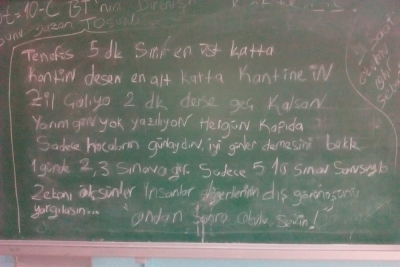 10-C
bunu yazan Tosun
Teneffüs 5 dk Sınıf en üst katta
kantin desen en alt katta Kantine iN
Zil Çalıyo 2 dk derse geç kalsan
Yarım gün yok yazılıyon Hergün Kapıda
Sadece hocaların günaydın, iyi günler demesini bekle
1 günde 2,3 Sınava gir. Sadece 5 Sınav
Zekanı ölçsünler İnsanlar diğerlerinin dış görünüşünü
yargılasın... ondan sonra okulu sevin!